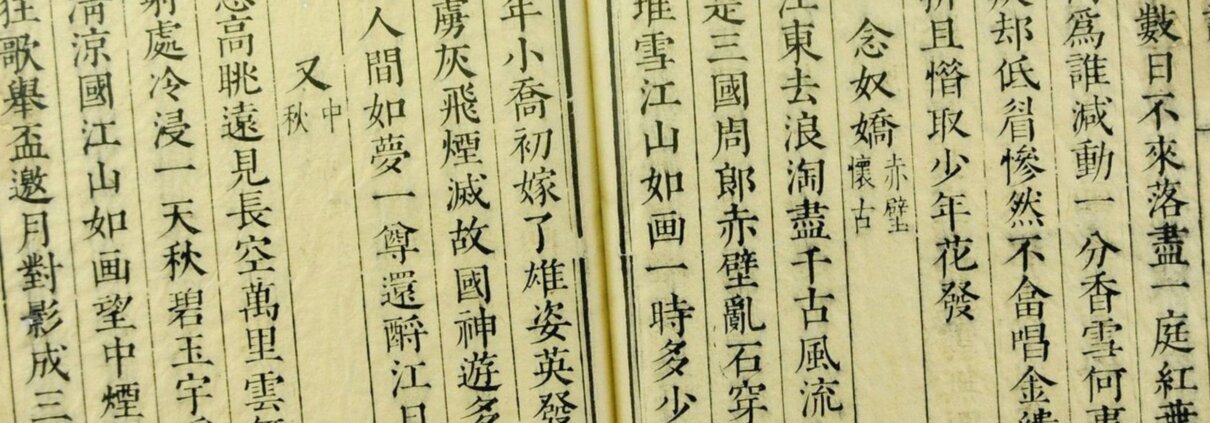 數日不來落盡一庭紅
爲誰減動一分香雪何
却低眉慘然不畣唱金
且憯取少年花發
念奴嬌赤壁懷古
江東去浪淘盡千古風流
是三國周郎赤壁亂石穿
堆雪江山如画一時多少
年小喬初嫁了雄姿英發
虜灰飛煙滅故國神遊多
人間如夢一尊還酹江月
又中秋
高眺遠見長空萬里雲
處冷浸一天秋碧玉宇
清涼國江山如画望中煙
狂歌舉盃邀月對影成三